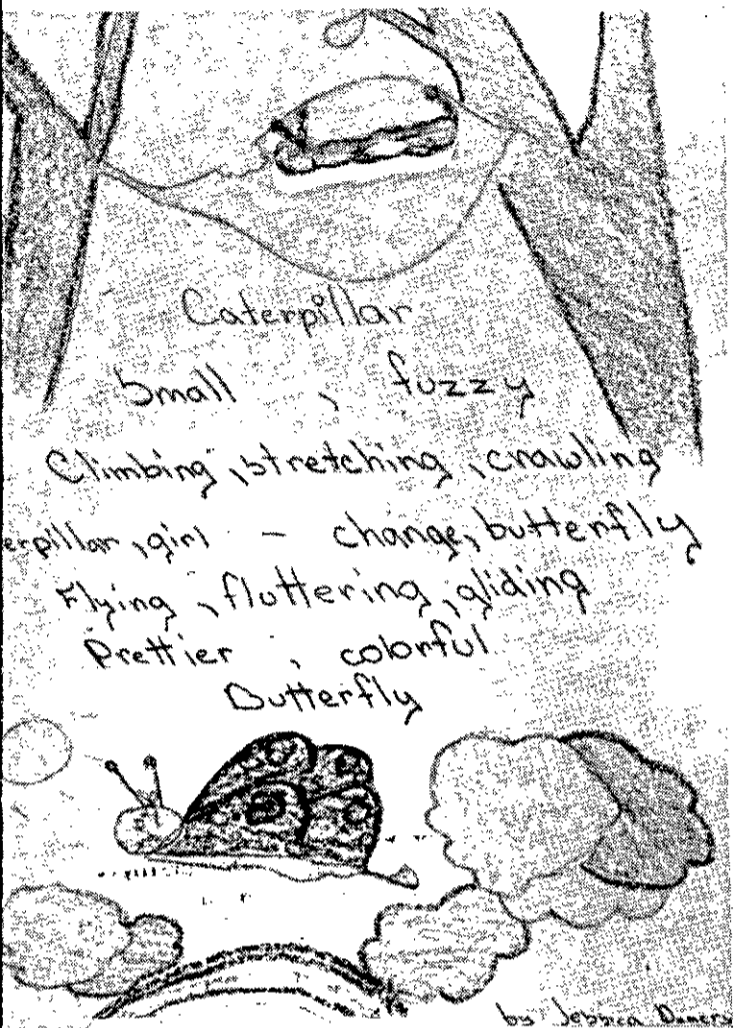 Caterpillar
Small , fuzzy
Climbing, stretching, crawling
erpillar, girl - change, butterfly
Flying, fluttering, gliding
Prettier , colorful
Butterfly
by Jessica